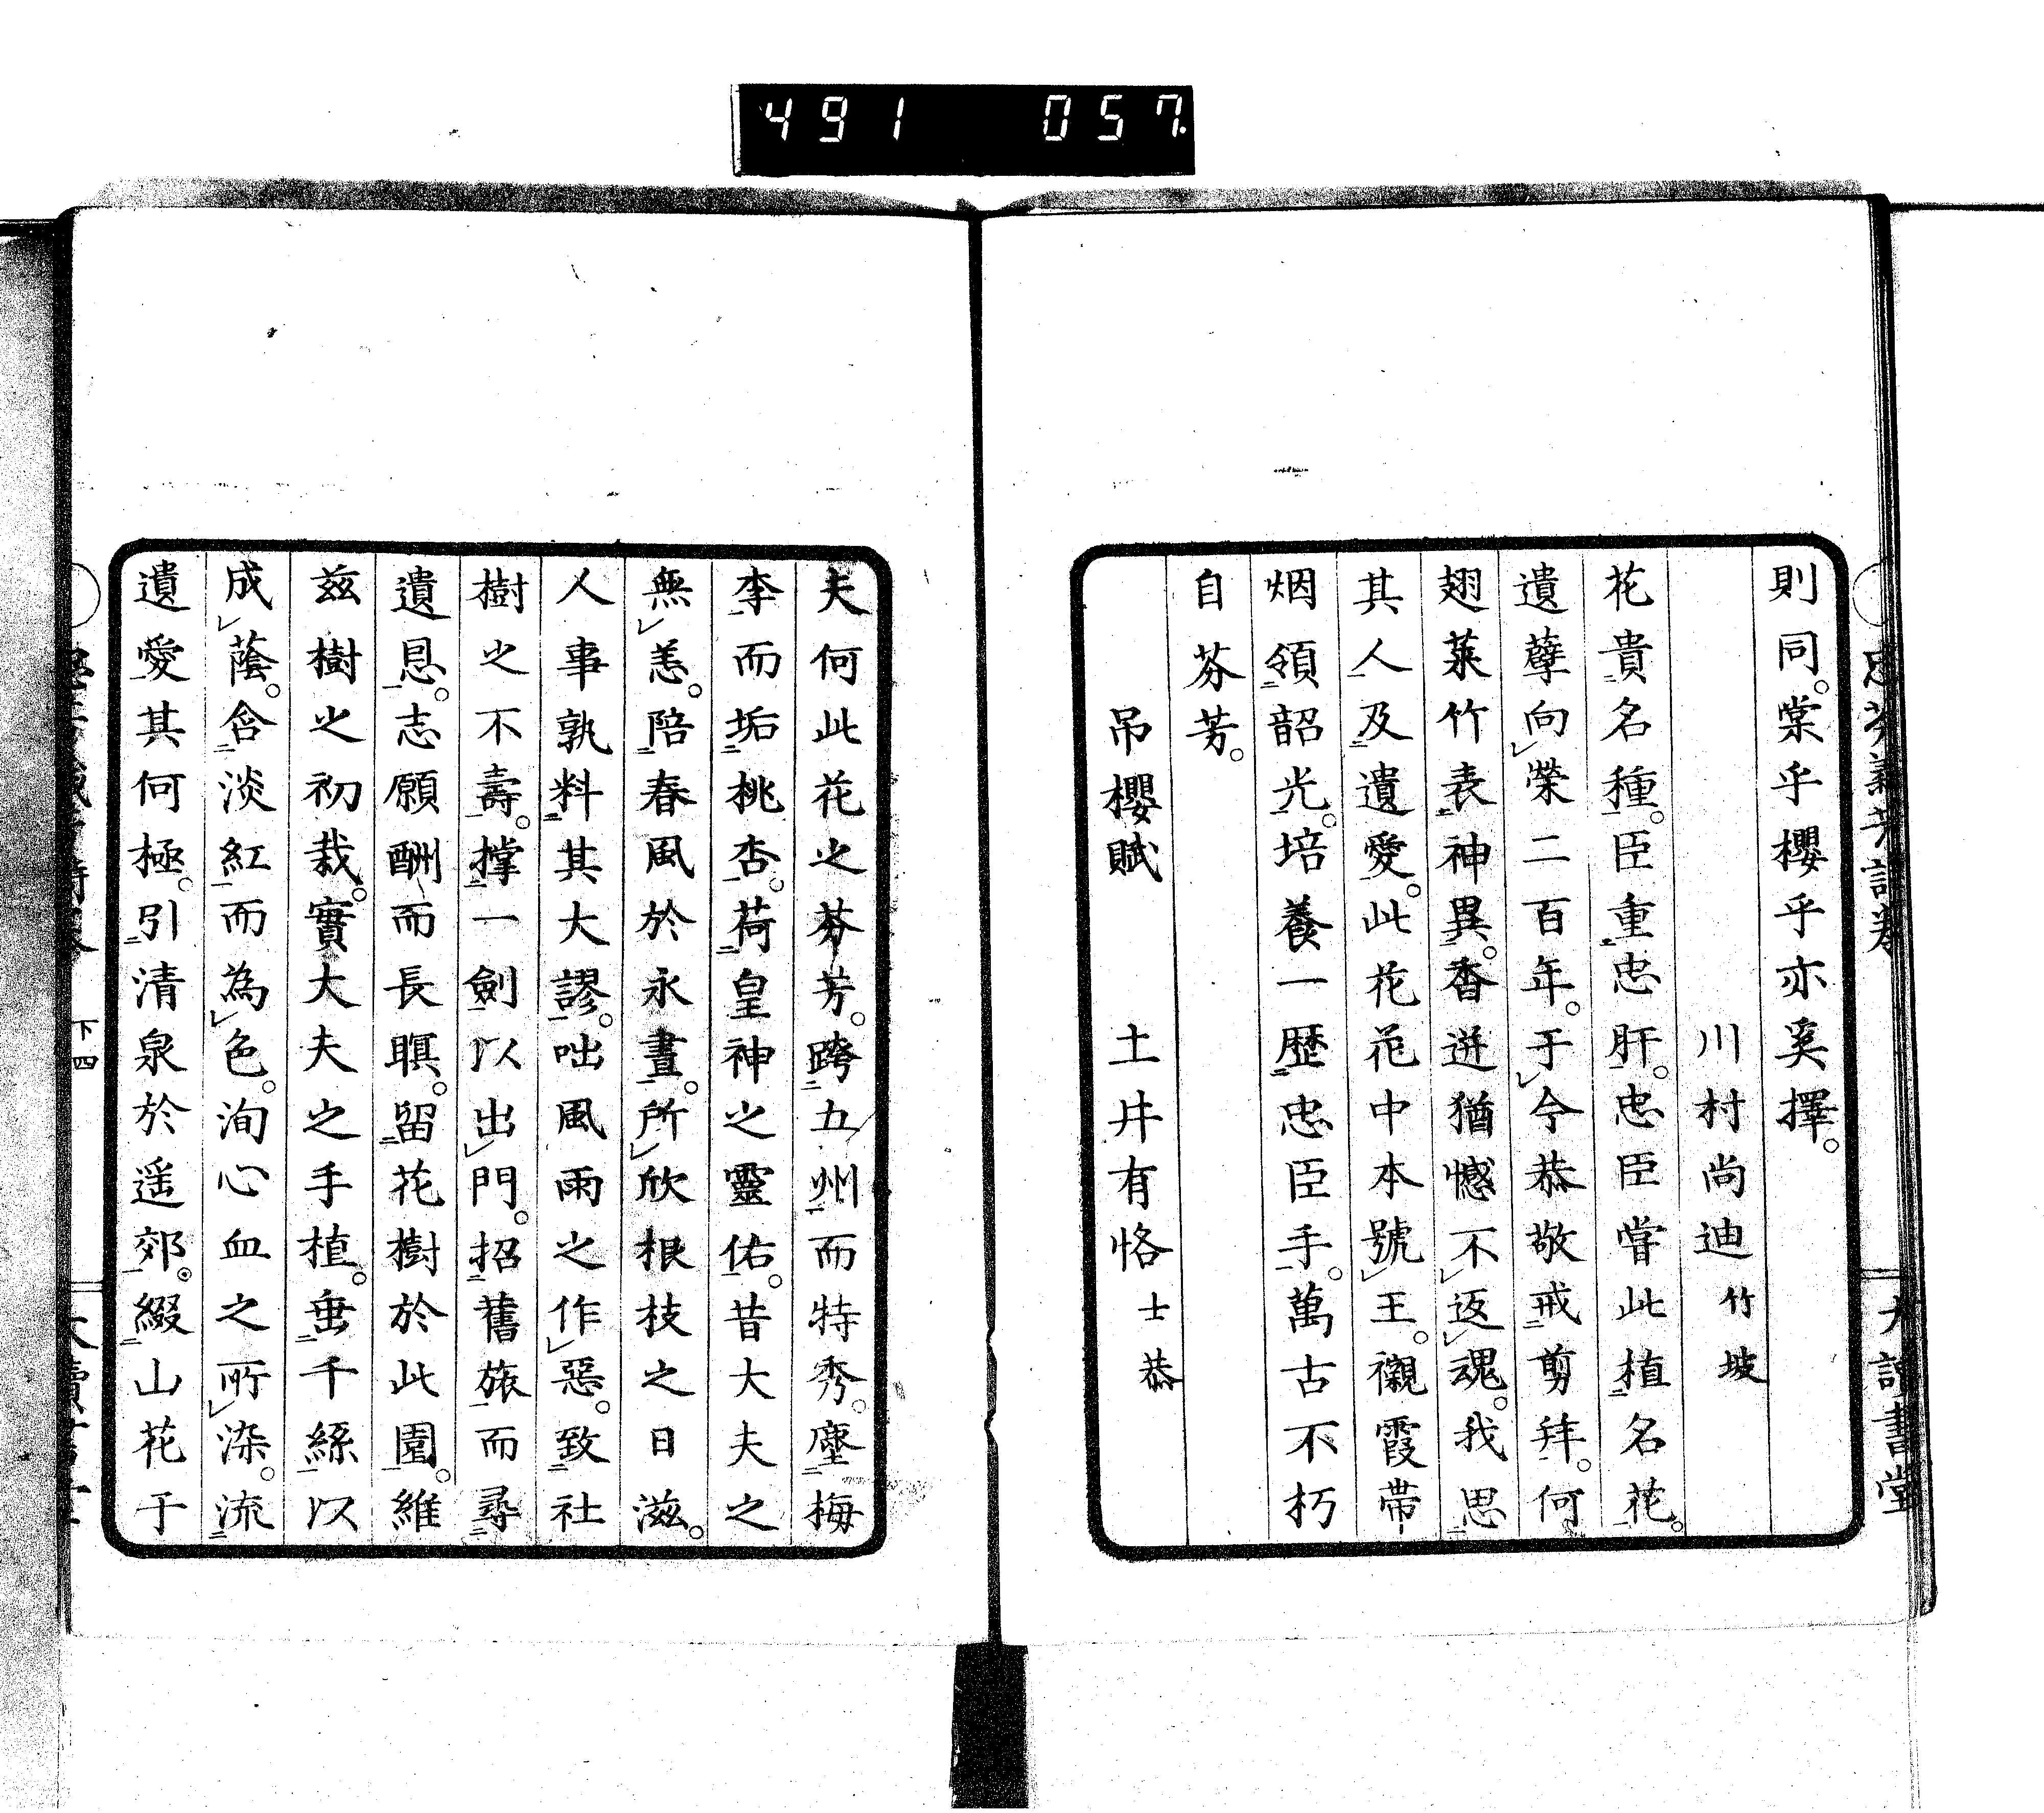 491 057
則同。棠乎櫻乎亦奚擇。
川村尚迪 竹坡
花貴名種。臣重忠肝。忠臣嘗此植名花。
遺孽向榮二百年。于今恭敬戒剪拜。何
翅萊竹表神異。香迸猶憾不返魂。我思
其人及遺愛。此花花中本號王。襯霞帶
烟領韶光。培養一歷忠臣手。萬古不朽
自芬芳。
吊櫻賦 土井有恪 士恭
夫何此花之芬芳。跨五州而特秀。塵梅
李而垢桃杏。荷皇神之靈佑。昔大夫之
無恙。陪春風於永晝。所欣根枝之日滋。
人事孰料其大謬。咄風雨之作惡。致社
樹之不壽。撑一劍以出門。招舊旅而尋
遺恩。志願酬而長瞑。留花樹於此園。維
茲樹之初栽。實大夫之手植。垂千絲以
成蔭。含淡紅而為色。洵心血之所染。流
遺愛其何極。引清泉於遥郊。綴山花于
下四